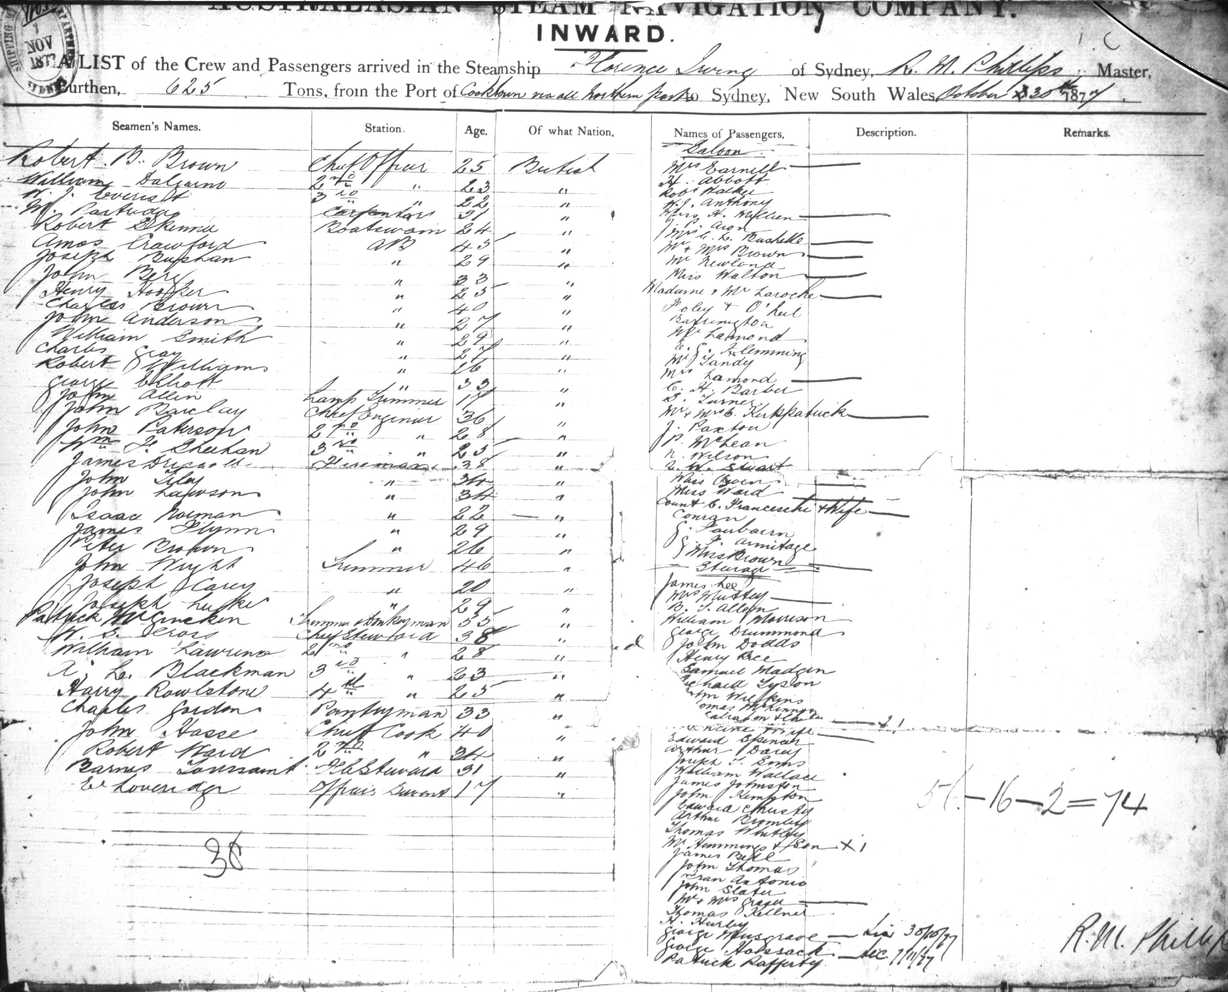 AUSTRALASIAN STEAM NAVIGATION COMPANY.
INWARD.
NOV
1877
A LIST of the Crew and Passengers arrived in the Steamship Florence Irving of Sydney, R. M. Phillips Master,
Burthen, 625 Tons, from the Port of Cooktown via all Northern ports to Sydney, New South Wales, October 30th 1877
Seamen's Names. Station. Age. Of what Nation.
Robert B. Brown Chief Officer 25 British
William Dalgarno 2nd " 23 "
W. J. Everest 3rd " 22 "
Carpenter 31 "
Robert Skinner Boatswain 24 "
Amos Crawford AB 45 "
Joseph Bushan " 29 "
John Berg " 33 "
Henry Hooker " 25 "
Charles Brown " 40 "
John Anderson " 27 "
William Smith " 29 "
Charles Gray " 27 "
Robert Williams " 26 "
George Elliott " 33 "
John Allen Lamp Trimmer 19 "
John Barclay Chief Engineer 36 "
John Paterson 2nd " 28 "
Wm F. Sheehan 3rd " 25 "
James Fireman 38 "
John Tiley " 30 "
John Lawson " 34 "
Isaac Norman " 22 "
James Flynn " 29 "
Peter Brown " 26 "
John Wright Trimmer 46 "
Joseph Carey " 20 "
Joseph " 29 "
Patrick McGincken Trimmer & Donkeyman 35 "
W. S. Chief Steward 38 "
William Lawrens 2nd " 28 "
A. L. Blackman 3rd " 23 "
Harry Rowlstone 4th " 25 "
Charles Gordon Pantryman 33 "
John Hasse Chief Cook 40 "
Robert Ward 2nd " 34 "
Barnes Toussaint F.C. Steward 31 "
E. Loveridge Officers Servant 17 "
38
Names of Passengers. Description. Remarks.
Saloon
Mrs Earnell
H. Abbott
Robt Walker
W. J. Anthony
P. Aron
Mrs C. L. Bushelle
Mr & Mrs Brown
Mr Newland
Miss Walton
Madame & Mr Laroche
Foley & O'Neil
Barrington
Wm Lamond
Flemming
Mr Tandy
Mrs Lamond
C. H. Barber
D. Turner
Mr & Mrs C. Kirkpatrick
J. Paxton
P. McLean
N. Wilson
R. W. Stuart
Miss Owen
Miss Ward
Count C. Franceschi & Wife
Conran
G. Fairbairn
F. Armitage
Miss Brown
Steerage
James Lee
Mrs Mustey
R. T. Alleyn
William Morrison
George Drummond
John Dodds
Henry Rice
Samuel Madgen
Richard Tyson
Wm Wilkins
Thomas McKinnon
Edward Spencer
Arthur Davey
Joseph T. Sons
William Wallace
James Johnston
John Kempton
Edward Christey
Arthur Bromley
Thomas Whitley
Mr Hemming & Son x1
James Bell
John Thomas
Fran Antonio
John Slater
Mr & Mrs Grazer
Thomas Kellner
H. Hurley
George Musgrave — 30/10/77
George Hossack — dec 7/11/77
Patrick Rafferty
56 - 16 - 2 = 74
R. M. Phillips